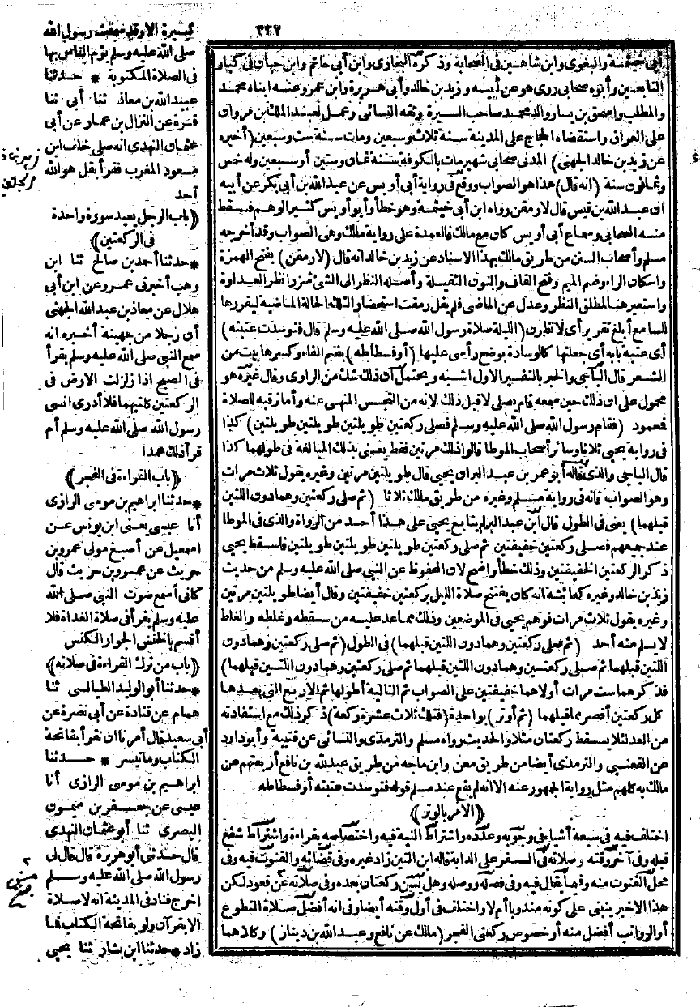 ٢٣٧
أبى خيثمة والبغوى وابن شاهين فى الصحابة وذكره البخارى وابن أبى حاتم وابن حبان فى كبار
التابعين وأبوه صحابى روى هو عن أبيه وزيد بن خالد وأبى هريرة وابن عمر وعنه ابناه محمد
والمطلب واسحق بن يسار والد محمد صاحب السيرة وثقه النسائى وعمل لعبد الملك بن مروان
على العراق واستقضاه الحجاج على المدينة سنة ثلاث وسبعين ومات سنة ست وسبعين (أخبره
عن زيد بن خالد الجهنى) المدنى صحابى شهير مات بالكوفة سنة ثمان وستين أو سبعين وله خمس
وثمانون سنة (انه قال) هذا هو الصواب ووقع فى رواية أبى أويس عن عبد الله بن أبى بكر عن أبيه
ان عبد الله بن قيس قال لارمقن رواه ابن أبى خيثمة وهو خطأ وأبو أويس كثير الوهم فسقط
منه الصحابى وسماع أبى أويس كان مع مالك فالعمدة على رواية مالك وهى الصواب وقد أخرجه
مسلم وأصحاب السنن من طريق مالك بهذا الاسناد عن زيد بن خالد انه قال (لارمقن) بفتح الهمزة
واسكان الراء وضم الميم وفتح القاف والنون الثقيلة وأصله النظر الى الشئ شزرا نظر العداوة
واستعير هنا لمطلق النظر وعدل عن الماضى فلم يقل رمقت استحضارا لتلك الحالة الماضية ليقررها
للسامع أبلغ تقرير أى لانظرن (الليلة صلاة رسول الله صلى الله عليه وسلم قال فتوسدت عتبته)
أى عتبة بابه أى جعلتها كالوسادة بوضع رأسى عليها (أو فسطاطه) بضم الفاء وكسرها بيت من
الشعر قال الباجى والخبر بالتفسير الاول أشبه ويحتمل أن ذلك شك من الراوى وقال غيره هو
محمول على ان ذلك حين سمعه قام يصلى لا قبل ذلك لانه من التجسس المنهى عنه وأما ترقبه للصلاة
فمحمود (فقام رسول الله صلى الله عليه وسلم فصلى ركعتين طويلتين طويلتين طويلتين) كذا
فى رواية يحيى ثلاثا وسائر أصحاب الموطا قالوا ذلك مرتين فقط يعنى بذلك المبالغة فى طولهما كذا
قال الباجى والذى قاله أبو عمر بن عبد البر ان يحيى قال طويلتين مرتين وغيره يقول ثلاث مرات
وهو الصواب فانه فى رواية مسلم وغيره من طريق مالك ثلاثا (ثم صلى ركعتين وهما دون اللتين
قبلهما) يعنى فى الطول قال ابن عبد البر لم يتابع يحيى على هذا أحد من الرواة والذى فى الموطا
عند جميعهم فصلى ركعتين خفيفتين ثم صلى ركعتين طويلتين طويلتين طويلتين فاسقط يحيى
ذكر الركعتين الخفيفتين وذلك خطأ واضح لان المحفوظ عن النبى صلى الله عليه وسلم من حديث
زيد بن خالد وغيره كعائشة انه كان يفتتح صلاة الليل بركعتين خفيفتين وقال أيضا طويلتين مرتين
وغيره يقول ثلاث مرات فوهم يحيى فى الموضعين وذلك مما عد عليه من سقطه وغلطه والغلط
لا يسلم منه أحد (ثم صلى ركعتين وهما دون اللتين قبلهما) فى الطول (ثم صلى ركعتين وهما دون
اللتين قبلهما ثم صلى ركعتين وهما دون اللتين قبلهما ثم صلى ركعتين وهما دون اللتين قبلهما)
فذكرهما ست مرات أولاهما خفيفتين على الصواب ثم التالية أطولها ثم الاربع التى بعدها
كل ركعتين أقصر مما قبلهما (ثم أوتر) بواحدة (فتلك ثلاث عشرة ركعة) ذكر ذلك مع استفادته
من العدد لئلا يسقط ركعتان مثلا والحديث رواه مسلم والترمذى والنسائى عن قتيبة وأبو داود
عن القعنبى والترمذى أيضا من طريق معن وابن ماجه من طريق عبد الله بن نافع أربعتهم عن
مالك به كلهم مثل رواية الجمهور عنه الا انه لم يقع عند مسلم قوله فتوسدت عتبته أو فسطاطه
(الأمر بالوتر)
اختلف فيه فى سبعة أشياء فى وجوبه وعدده واشتراط النية فيه واختصاصه بقراءة واشتراط شفع
قبله وفى آخر وقته وصلاته فى السفر على الدابة قاله ابن التين زاد غيره وفى قضائه والقنوت فيه وفى
محل القنوت منه وفيما يقال فيه وفى فصله ووصله وهل تسن ركعتان بعده وفى صلاته عن قعود لكن
هذا الاخير ينبنى على كونه مندوبا أم لا واختلف فى أول وقته أيضا وفى انه أفضل صلاة التطوع
أو الرواتب أفضل منه أو خصوص ركعتى الفجر (مالك عن نافع وعبد الله بن دينار) وكلاهما
صلى الله عليه وسلم يؤم الناس بها
فى الصلاة المكتوبة * حدثنا
عبيد الله بن معاذ ثنا أبى ثنا
قرة عن النزال بن عمار عن أبى
عثمان النهدى انه صلى خلف ابن
مسعود المغرب فقرأ بقل هو الله
أحد
(باب الرجل يعيد سورة واحدة
فى الركعتين)
* حدثنا أحمد بن صالح ثنا ابن
وهب أخبرنى عمرو عن ابن أبى
هلال عن معاذ بن عبد الله الجهنى
أن رجلا من جهينة أخبره انه
سمع النبى صلى الله عليه وسلم يقرأ
فى الصبح اذا زلزلت الارض فى
الركعتين كلتيهما فلا أدرى أنسى
رسول الله صلى الله عليه وسلم أم
قرأ ذلك عمدا
(باب القراءة فى الفجر)
* حدثنا ابراهيم بن موسى الرازى
أنا عيسى يعنى ابن يونس عن
اسمعيل عن أصبغ مولى عمرو بن
حريث عن عمرو بن حريث قال
كأنى أسمع صوت النبى صلى الله
عليه وسلم يقرأ فى صلاة الغداة فلا
أقسم بالخنس الجوار الكنس
(باب من ترك القراءة فى صلاته)
* حدثنا أبو الوليد الطيالسى ثنا
همام عن قتادة عن أبى نضرة عن
أبى سعيد قال أمرنا ان نقرأ بفاتحة
الكتاب وما تيسر * حدثنا
ابراهيم بن موسى الرازى أنا
عيسى عن جعفر بن ميمون
البصرى ثنا أبو عثمان النهدى
قال حدثنى أبو هريرة قال قال لى
رسول الله صلى الله عليه وسلم
اخرج فناد فى المدينة انه لا صلاة
الا بقرآن ولو بفاتحة الكتاب فما
زاد * حدثنا ابن بشار ثنا يحيى